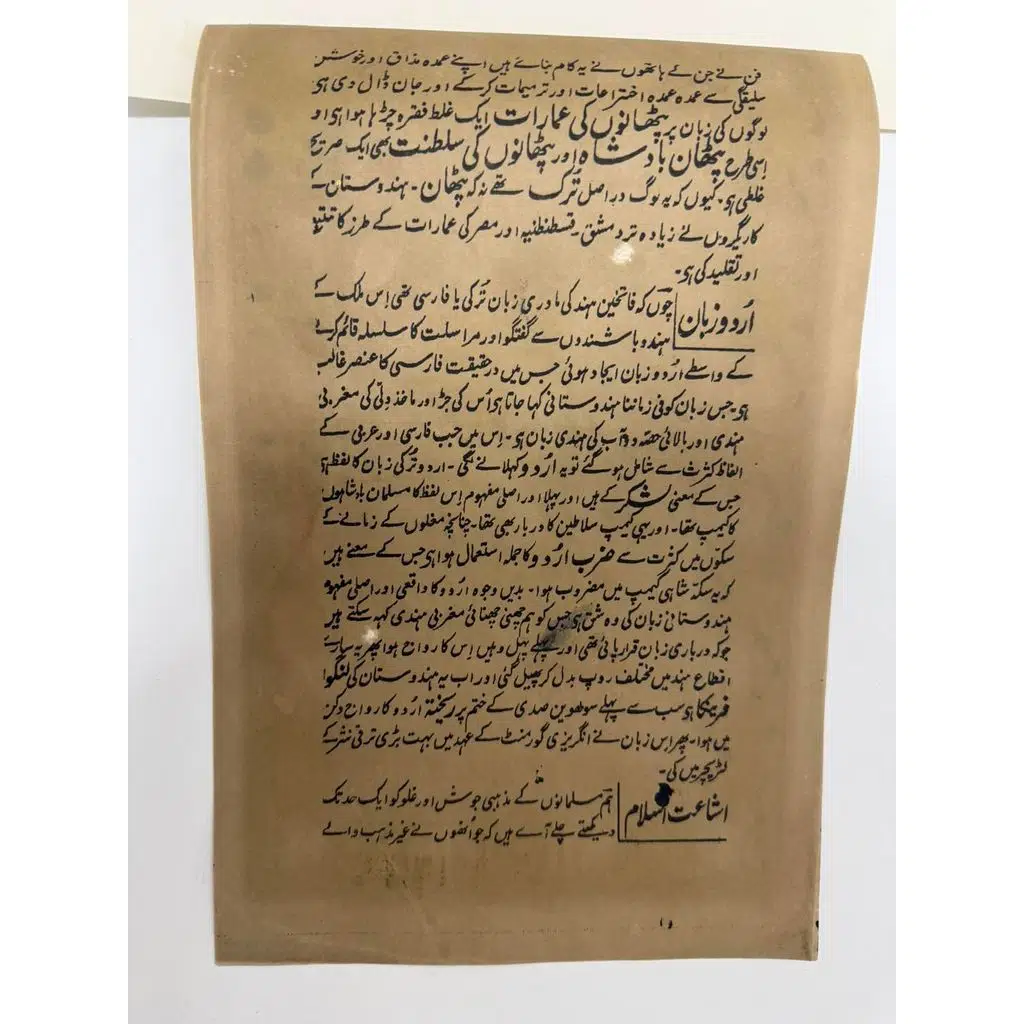 فن نے جن کے ہاتھوں نے یہ کام بنائے ہیں اپنے عمدہ مذاق اور خوش
سلیقگی سے عمدہ عمدہ اختراعات اور ترمیمات کر کے اور جان ڈال دی ہی
لوگوں کی زبان پر پٹھانوں کی عمارات ایک غلط فقرہ چڑہا ہوا ہی او
اِسی طرح پٹھان بادشاہ اور پٹھانوں کی سلطنت بھی ایک صریح
غلطی ہی۔ کیوں کہ یہ لوگ در اصل تُرک تھے نہ کہ پٹھان ۔ ہندوستان کے
کاریگروں نے زیادہ تر دمشق ۔ قسطنطنیہ اور مصر کی عمارات کے طرز کا تتبع
اور تقلید کی ہی۔
اُردو زبان
چوں کہ فاتحین ہند کی مادری زبان تُرکی یا فارسی تھی اِس ملک کے
ہندو باشندوں سے گفتگو اور مراسلت کا سلسلہ قائم کرنے
کے واسطے اُردو زبان ایجاد ہوئی جس میں در حقیقت فارسی کا عنصر غالب
ہی۔ جس زبان کو فی زماننا ہندوستانی کہا جاتا ہی اُس کی جڑ اور ماخذ دِلی کی مغربی
ہندی اور بالائی حصّہ دوآب کی ہندی زبان ہی۔ اِس میں جب فارسی اور عربی کے
الفاظ کثرت سے شامل ہو گئے تو یہ اُردو کہلانے لگی ۔ اردو تُرکی زبان کا لفظ ہی
جس کے معنی لشکر کے ہیں اور پہلا اور اصلی مفہوم اِس لفظ کا مسلمان بادشاہوں
کا کیمپ تھا۔ اور یہی کیمپ سلاطین کا دربار بھی تھا۔ چنانچہ مغلوں کے زمانے کے
سکّوں میں کثرت سے ضرب اُردو کا جملہ استعمال ہوا ہی جس کے معنے ہیں
کہ یہ سکّہ شاہی کیمپ میں مضروب ہوا۔ بدیں وجوہ اردو کا واقعی اور اصلی مفہو
ہندوستانی زبان کی وہ شق ہی جس کو ہم چھنی چھنائی مغربی ہندی کہہ سکتے ہیں
جو کہ درباری زبان قرار پائی تھی اور پہلے پہل وہیں اِس کا رواج ہوا پھر یہ سارے
اقطاع ہند میں مختلف روپ بدل کر پھیل گئی اور اب یہ ہندوستان کی لنگوا
فرینکا ہی سب سے پہلے سولھویں صدی کے ختم پر ریختہ اُردو کا رواج دکن
میں ہوا۔ پھر اِس زبان نے انگریزی گورمنٹ کے عہد میں بہت بڑی ترقی نثر کے
لٹریچر میں کی۔
اشاعت اسلام
ہم مسلمانوں کے مذہبی جوش اور غلو کو ایک حد تک
دیکھتے چلے آئے ہیں کہ جو اُنھوں نے غیر مذہب والے